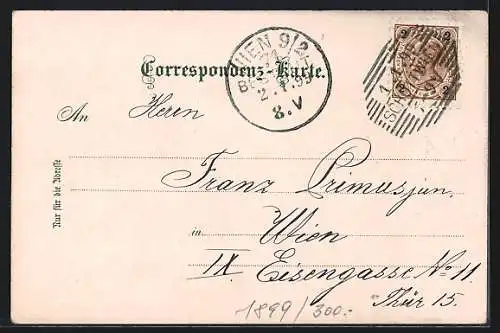 WIEN 9/2
71
8.V
Correspondenz-Karte.
2 2
2 2
An Herrn
Nur für die Adresse
Franz Primus jun.
in Wien
IX. Eisengasse No 11.
Thür 15.
1899/300.-